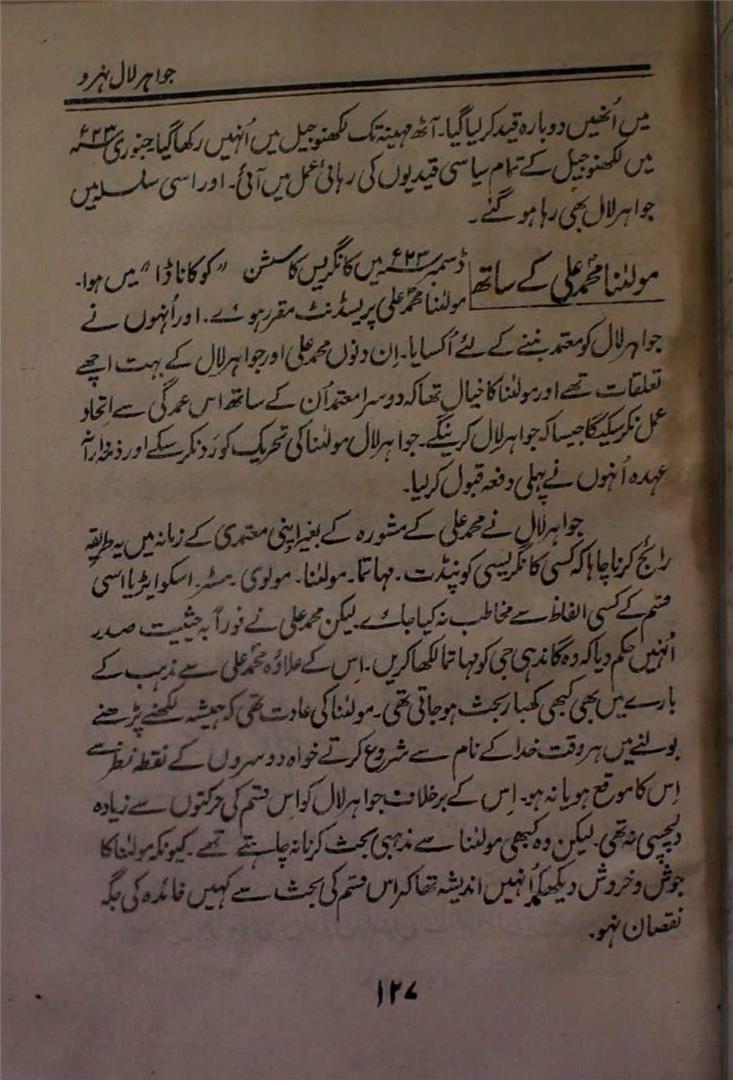 جواہر لال نہرو
میں اُنھیں دوبارہ قید کر لیا گیا۔ آٹھ مہینہ تک لکھنو جیل میں اُنہیں رکھا گیا جنوری ۲۳ء
میں لکھنو جیل کے تمام سیاسی قیدیوں کی رہائی عمل میں آئی۔ اور اسی سلسلہ میں
جواہر لال بھی رہا ہو گئے۔
مولٰنا محمد علی کے ساتھ
ڈسمبر ۲۳ء میں کانگریس کا سشن "کوکاناڈا" میں ہوا۔
مولٰنا محمد علی پریسڈنٹ مقرر ہوئے۔ اور اُنہوں نے
جواہر لال کو معتمد بننے کے لئے اُکسایا۔ اِن دنوں محمد علی اور جواہر لال کے بہت اچھے
تعلقات تھے اور مولٰنا کا خیال تھا کہ دوسرا معتمد اُن کے ساتھ اس عمدگی سے اِتحاد
عمل نکر سکیگا جیسا کہ جواہر لال کرینگے۔ جواہر لال مولٰنا کی تحریک کو رَد نکر سکے اور ذمہ دارانہ
عہدہ اُنہوں نے پہلی دفعہ قبول کر لیا۔
جواہر لال نے محمد علی کے مشورہ کے بغیر اپنی معتمدی کے زمانہ میں یہ طریقہ
رائج کرنا چاہا کہ کسی کانگریسی کو پنڈت۔ مہاتما۔ مولٰنا۔ مولوی۔ مسٹر۔ اسکوایر یا اسی
قسم کے کسی الفاظ سے مخاطب نہ کیا جائے لیکن محمد علی نے فوراً بہ حیثیت صدر
اُنہیں حکم دیا کہ وہ گاندہی جی کو مہاتما لکھا کریں۔ اِس کے علاوہ محمد علی سے مذہب کے
بارے میں بھی کبھی کبھار بحث ہو جاتی تھی۔ مولٰنا کی عادت تھی کہ ہمیشہ لکھنے پڑھنے
بولنے میں ہر وقت خدا کے نام سے شروع کرتے خواہ دوسروں کے نقطہ نظر سے
اِس کا موقع ہو یا نہ ہو۔ اِس کے برخلاف جواہر لال کو اِس قسم کی حرکتوں سے زیادہ
دلچسپی نہ تھی۔ لیکن وہ کبھی مولٰنا سے مذہبی بحث کرنا نہ چاہتے تھے۔ کیونکہ مولٰنا کا
جوش و خروش دیکھکر اُنہیں اندیشہ تھا کہ اس قسم کی بحث سے کہیں فائدہ کی جگہ
نقصان نہو۔
۱۲۷